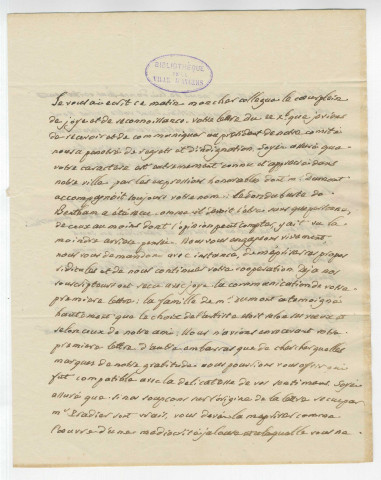 BIBLIOTHEQUE
VILLE D'ANGERS
Je vous ai ecrit ce matin mon cher collegue le cœur plein
de joye et de reconnoissance. votre lettre du que je viens
de recevoir et de communiquer au président de notre comité
nous a penetré de regrets et d'indignation. soyez assuré que
votre caractere est autrement connu et apprecié dans
notre ville par les expressions honorables dont mr Dumont
accompagnoit toujours votre nom: le don du buste de
Bentham a été reçu comme il devoit l'être sans que personne,
de ceux au moins dont l'opinion peut compter, y ait vu la
moindre arriere pensée. Nous vous engageons vivement
nous vous demandons avec instance, de mépriser ces propos
ridicules et de nous continuer votre cooperation. deja nos
souscripteurs ont reçu avec joye la communication de votre
premiere lettre: la famille de mr Dumont a temoigné
hautement que le choix de l'artiste etoit
selon celui de notre ami: Nous n'avions en recevant votre
premiere lettre d'autre embarras que de chercher quelles
marques de notre gratitude nous pouvions vous offrir qui
fut compatible avec la delicatesse de vos sentimens. Soyez
assuré que si nos soupçons sur l'origine de la lettre reçue par
mr Pradier sont vrais, vous devez la mepriser comme
l'œuvre d'une mediocrité jalouse à laquelle vous ne